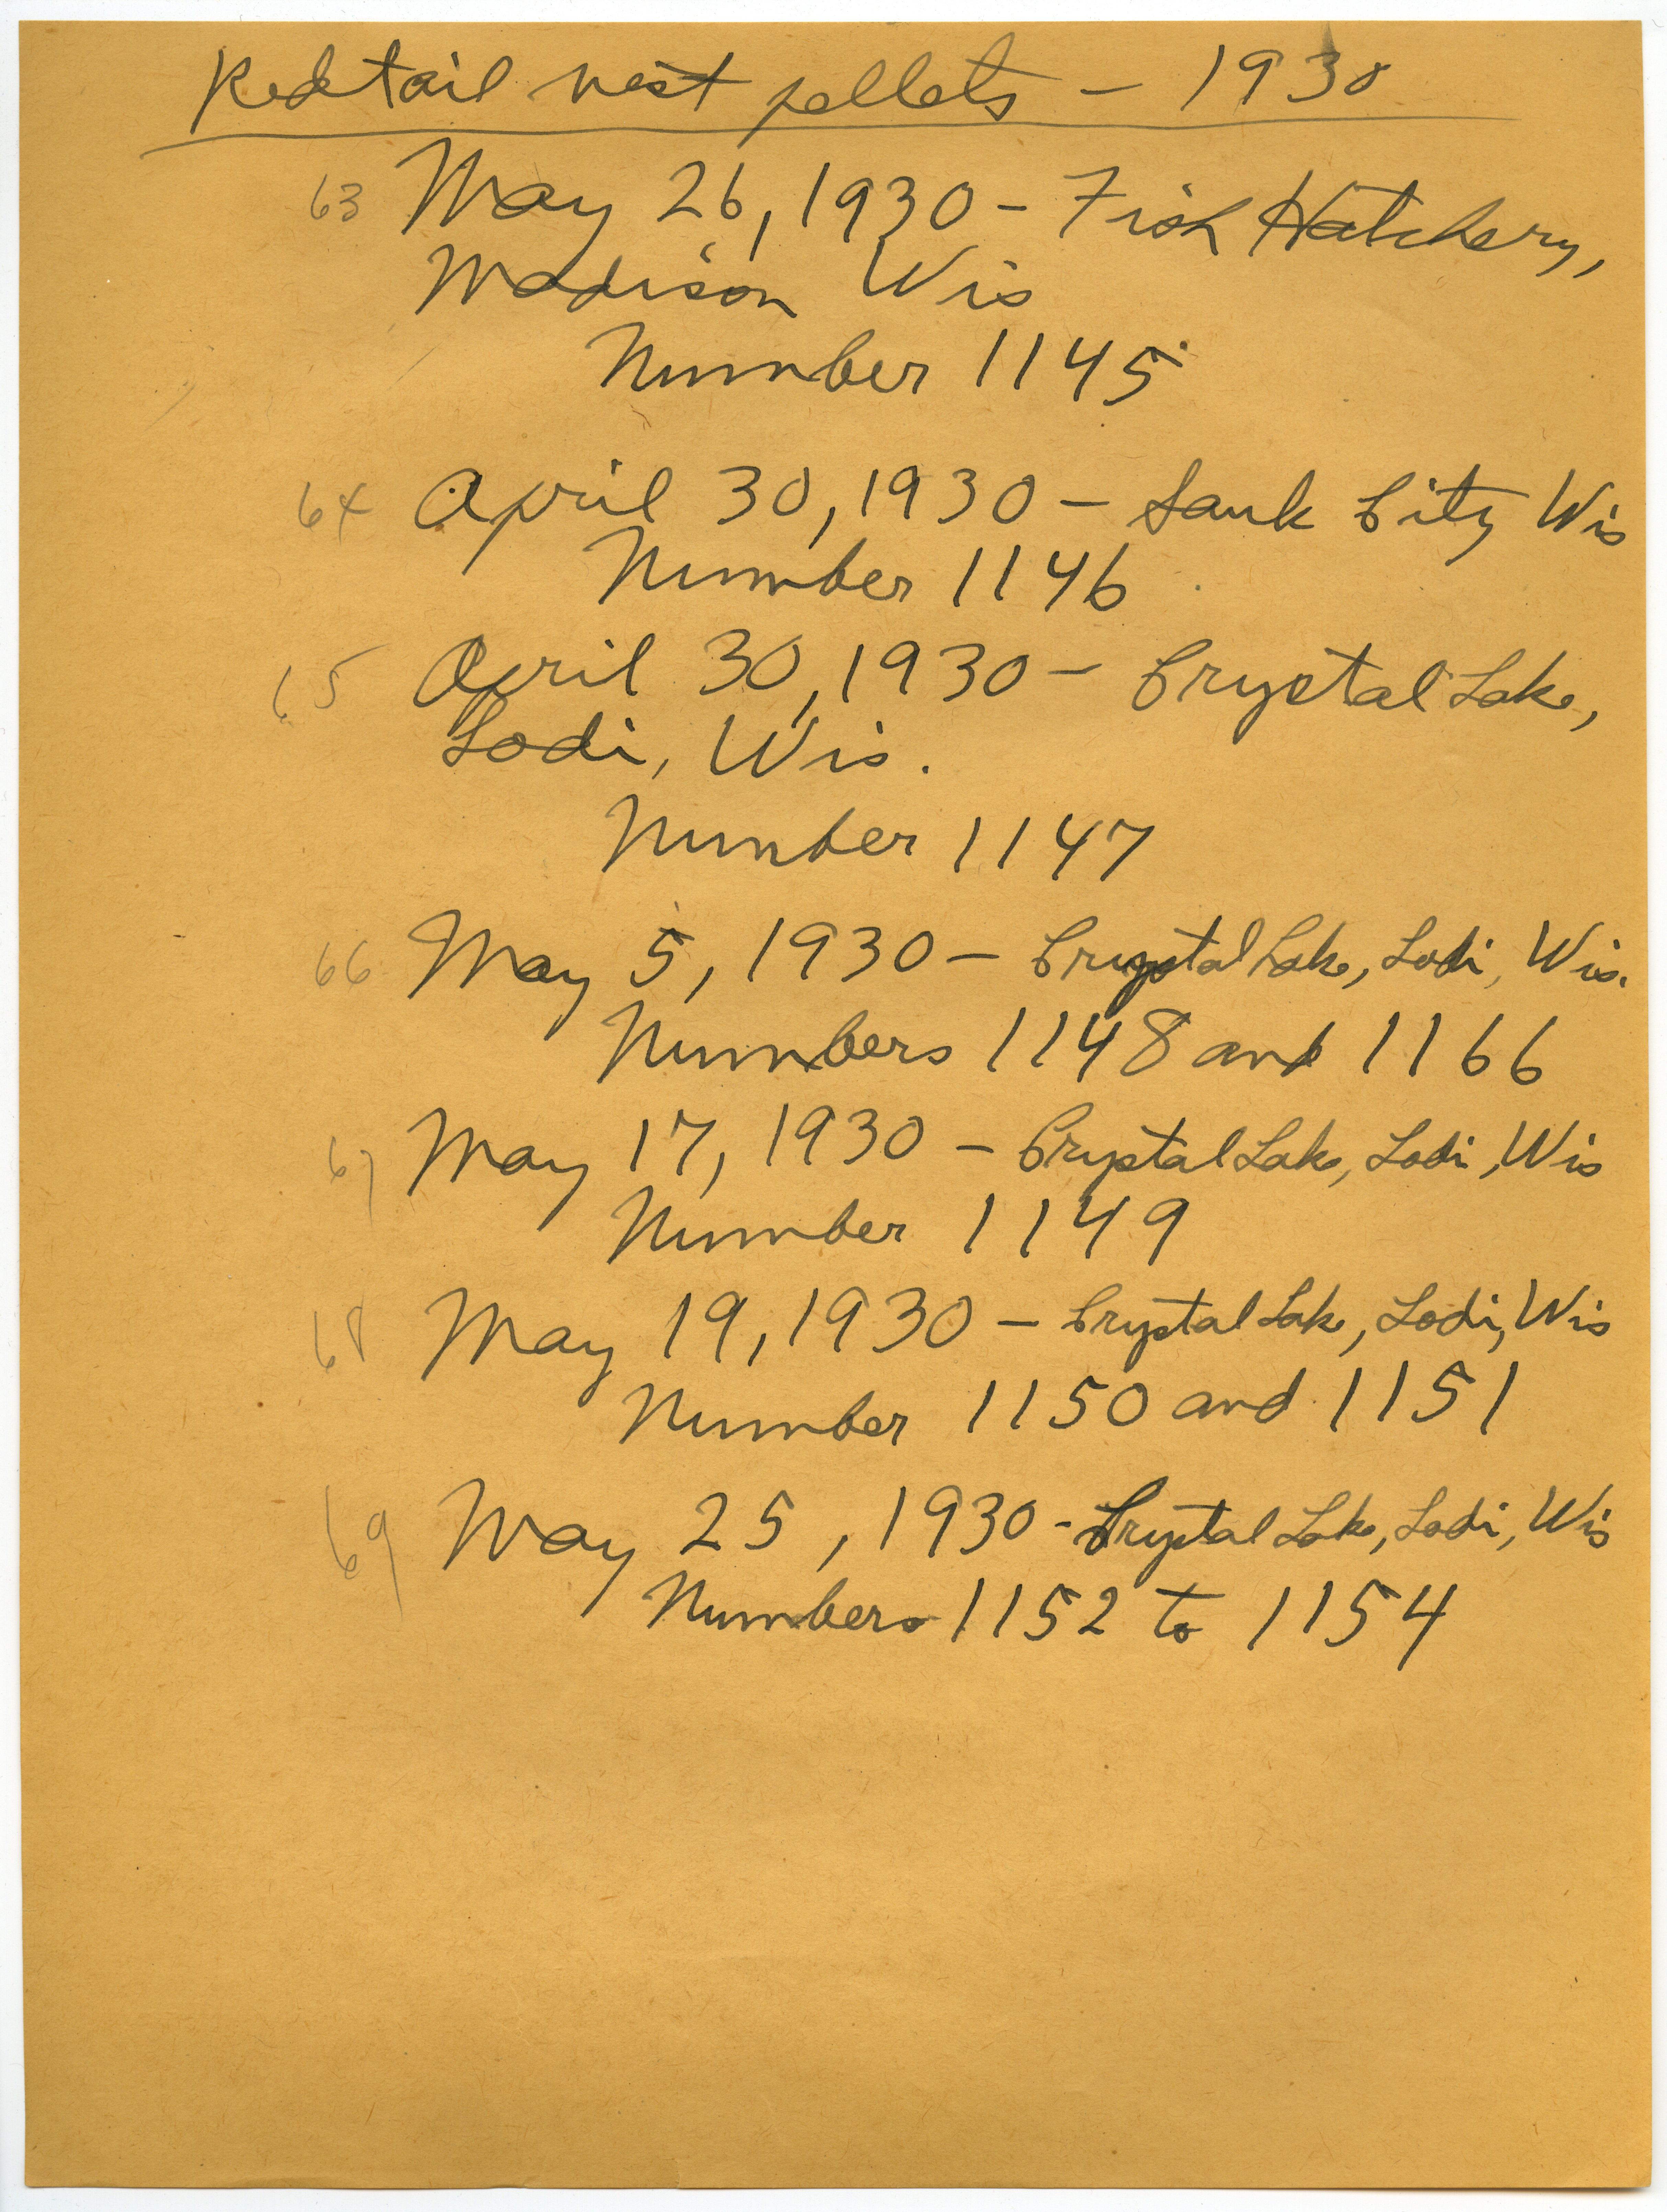 Redtail nest pellets – 1930
63 May 26, 1930 – Fish Hatchery,
Madison Wis
Number 1145
64 April 30, 1930 – Sauk City Wis
Number 1146
65 April 30, 1930 – Crystal Lake,
Lodi, Wis.
Number 1147
66 May 5, 1930 – Crystal Lake, Lodi, Wis.
Numbers 1148 and 1166
67 May 17, 1930 – Crystal Lake, Lodi, Wis
Number 1149
68 May 19, 1930 – Crystal Lake, Lodi, Wis
Number 1150 and 1151
69 May 25, 1930 - Crystal Lake, Lodi, Wis
Numbers 1152 to 1154